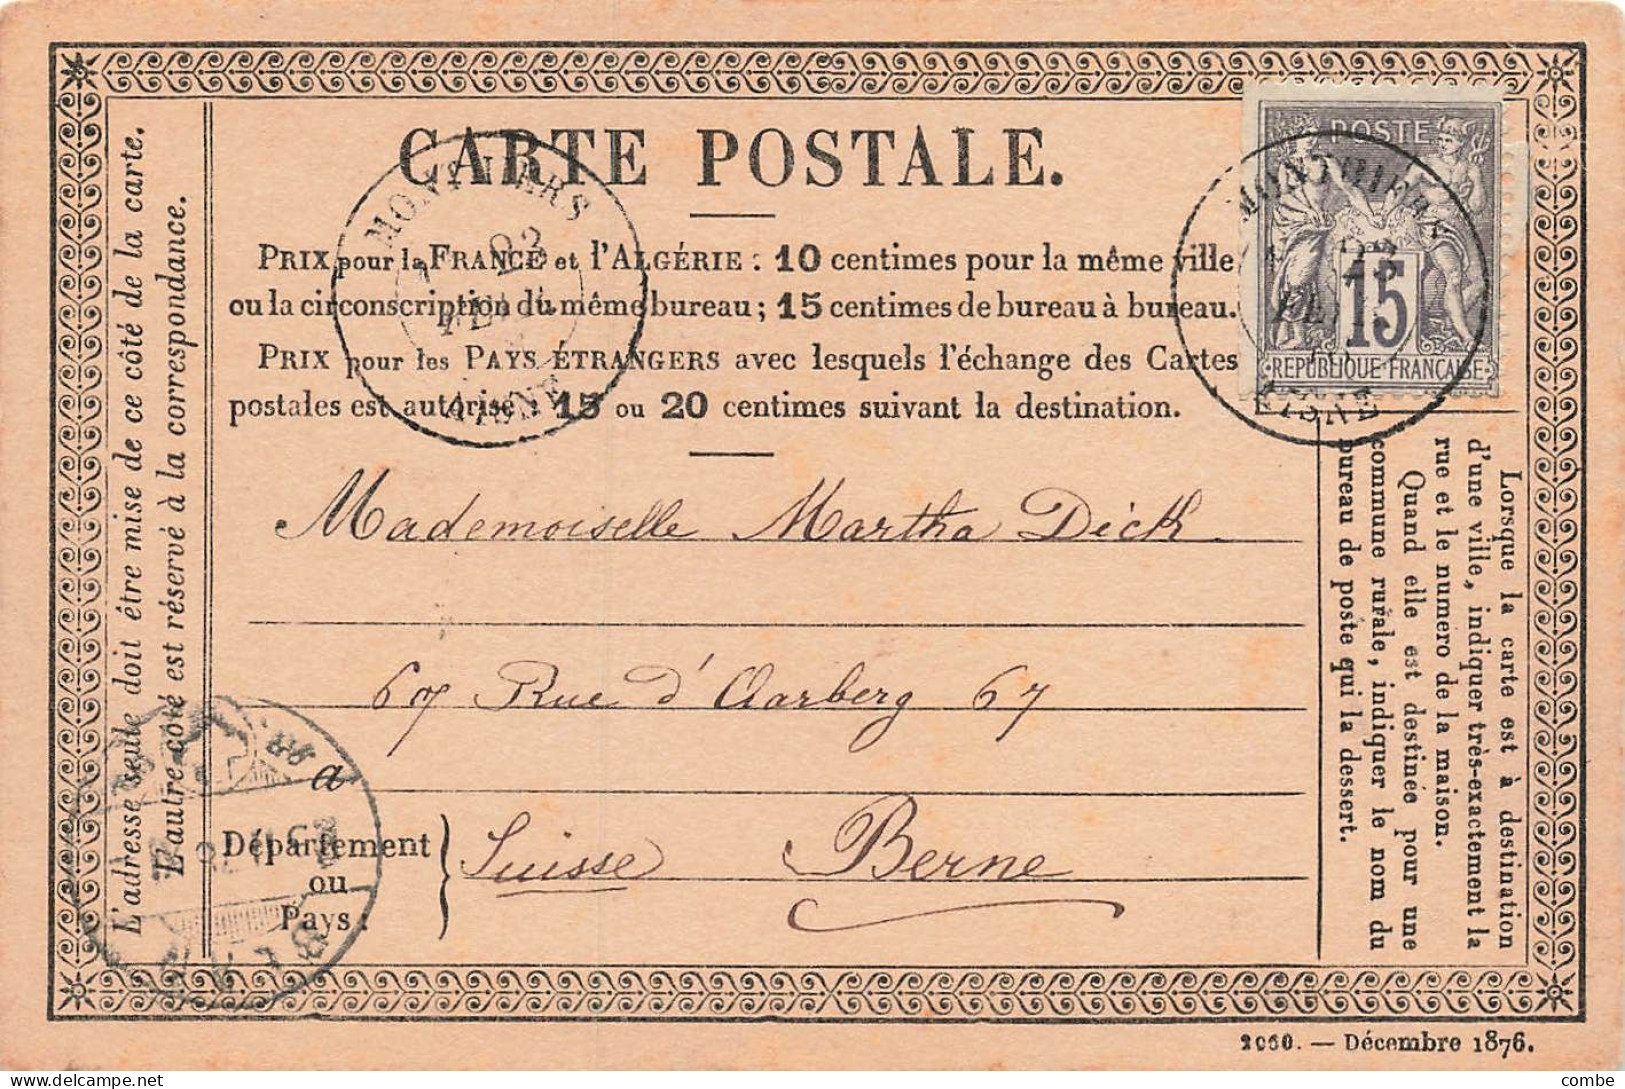 CARTE POSTALE.
PRIX pour la FRANCE et l'ALGÉRIE : 10 centimes pour la même ville
ou la circonscription du même bureau ; 15 centimes de bureau à bureau.
PRIX pour les PAYS ÉTRANGERS avec lesquels l'échange des Cartes
postales est autorisé : 15 ou 20 centimes suivant la destination.
POSTE
15
REPUBLIQUE FRANCAISE
AISNE
AISNE
L'adresse seule doit être mise de ce côté de la carte.
L'autre côté est réservé à la correspondance.
Mademoiselle Martha Dick
67 Rue d'Aarberg 67
a
Département
ou
Pays :
Suisse Berne
Lorsque la carte est à destination
d'une ville, indiquer très-exactement la
rue et le numero de la maison.
Quand elle est destinée pour une
commune rurale, indiquer le nom du
bureau de poste qui la dessert.
2060. — Décembre 1876.
combe